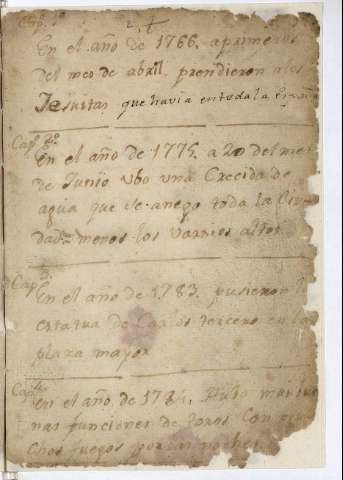 Capº 1º
2. †
En el año de 1766. aprimeros
Del mes de abril. prendieron alos
Jesuitas que havia entoda la España
Capº 2º
En el año de 1775. a 20 del mes
de Junio Ubo una Crecida de
agua que se anego toda la Ciu
dad menos los varrios altos
Capº
En el año de 1783. pusieron la
estatua de Carlos tercero en la
plaza mayor
Capº
en el año de 1784. Hubo muy bue
nas funciones de toros Con mu
chos fuegos por las noches